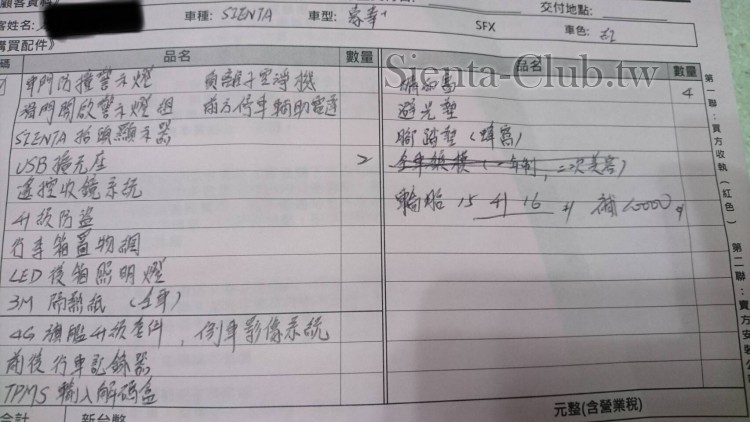 顧客資料》
交付地點:
客姓名: 車種: SIENTA 車型: 豪華+ SFX 車色: 紅
購買配件》
碼 品名 數量 品名 數量
車門防撞警示燈 負離子空淨機
Sienta-Club.tw
4
掀門開啟警示燈組 前方停車輔助雷達 避光墊
SIENTA抬頭顯示器 腳踏墊(蜂窩)
USB擴充座 2 全車鍍膜(一年制,二次美容)
遙控收鏡系統 輪胎 15 升 16 吋 補 10000
升級防盜
行車箱置物網
LED後箱照明燈
3M 隔熱紙 (全車)
4G旗艦升級套件,倒車影像系統
前後行車記錄器
TPMS輸入解碼盒
合計 新台幣 元整(含營業稅)
第一聯:賣方收執(紅色)
第二聯:賣方安裝